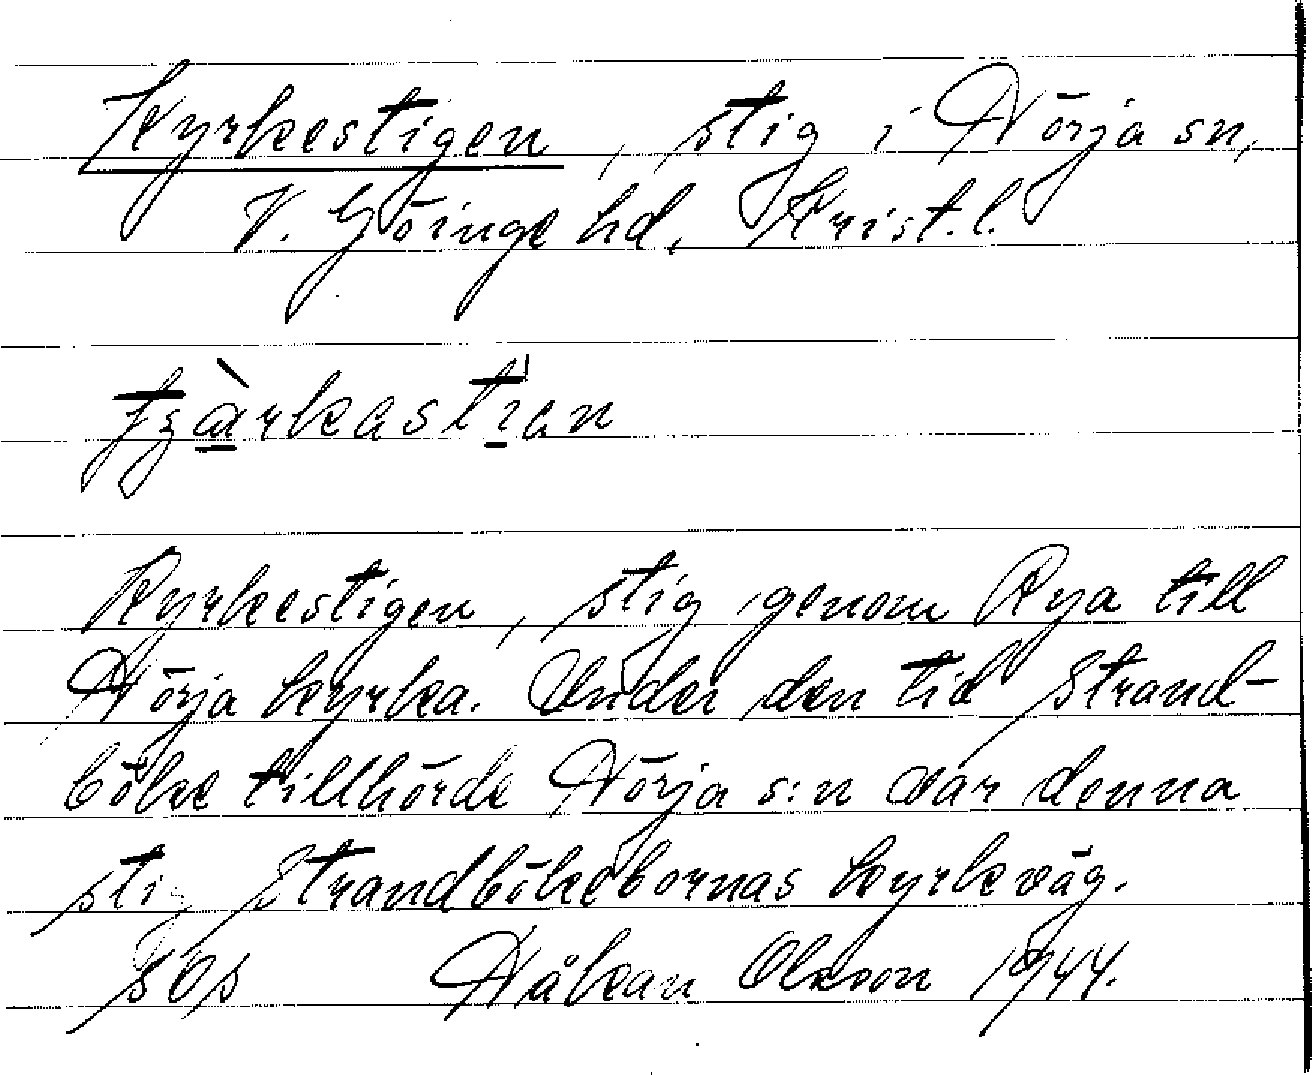 Kyrkestigen, stig i Nörja sn,
V. Göinge hd, Krist. l.
Kyrkestigen, stig genom Rya till
Nörja kyrka. Under den tid Strand-
böke tillhörde Nörja s:n var denna
stig Strandbökebornas kyrkväg.
Håkan Olsson 1944.